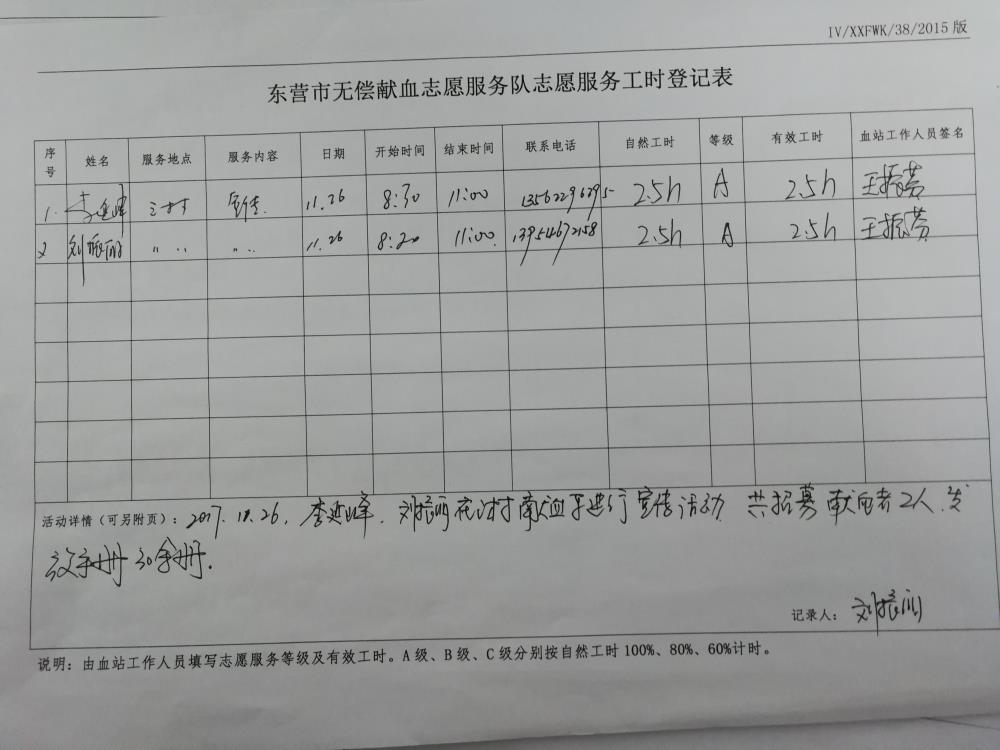 IV/XXFWK/38/2015 版
东营市无偿献血志愿服务队志愿服务工时登记表
序号 姓名 服务地点 服务内容 日期 开始时间 结束时间 联系电话 自然工时 等级 有效工时 血站工作人员签名
1. 李延峰 宣传 11.26 8:30 11:00 13562296295 2.5h A 2.5h 王振芳
2 刘振丽 〃 〃 〃 11.26 8:20 11:00 13954672158 2.5h A 2.5h 王振芳
活动详情（可另附页）：2017.11.26，李延峰，刘振丽在 献血车进行宣传活动 共招募献血者2人，发
放手册30余册.
记录人：刘振丽
说明：由血站工作人员填写志愿服务等级及有效工时。A级、B级、C级分别按自然工时100%、80%、60%计时。